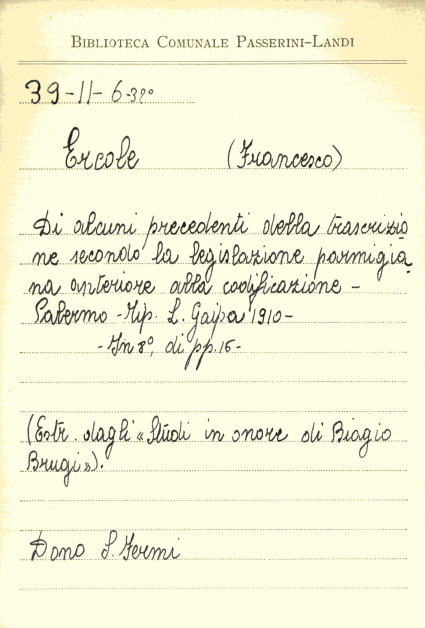 BIBLIOTECA COMUNALE PASSERINI-LANDI
39-11-6-32°
Ercole (Francesco)
Di alcuni precedenti della trascrizio
ne secondo la legislazione parmigia
na anteriore alla codificazione -
Palermo - Tip. L. Gaipa 1910 -
- In 8°, di pp. 16 -
(Estr. dagli « Studi in onore di Biagio
Brugi »).
Dono S. Fermi